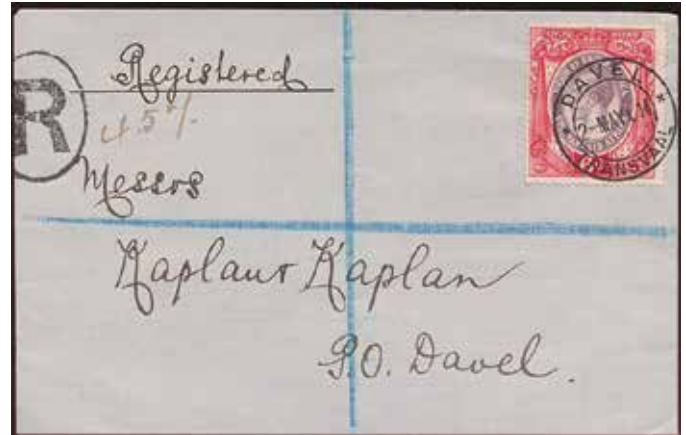 Registered
R
Messrs
Kaplan & Kaplan
P.O. Davel.
DAVEL
2-MAY
TRANSVAAL